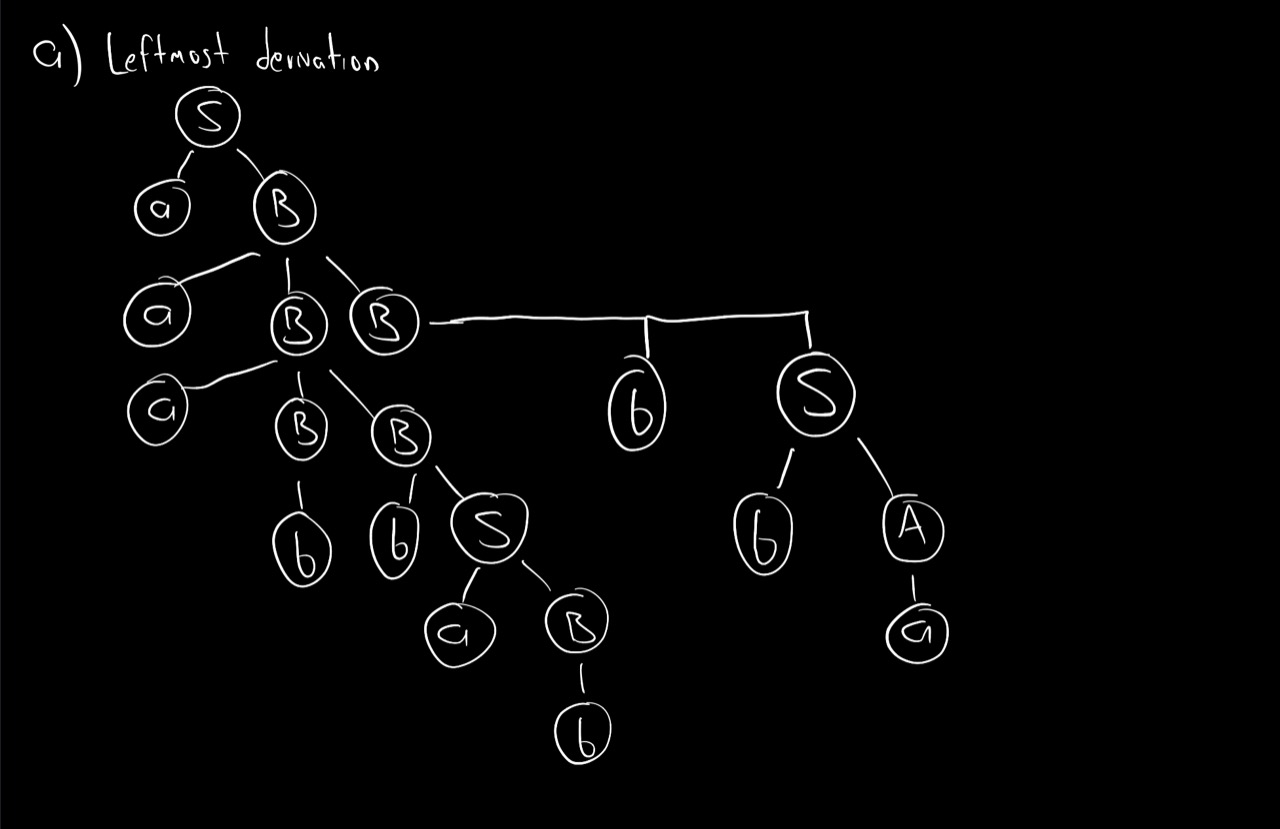 a) Leftmost derivation
S
a B
a B B
a B B b S
b b S b A
a B a
b